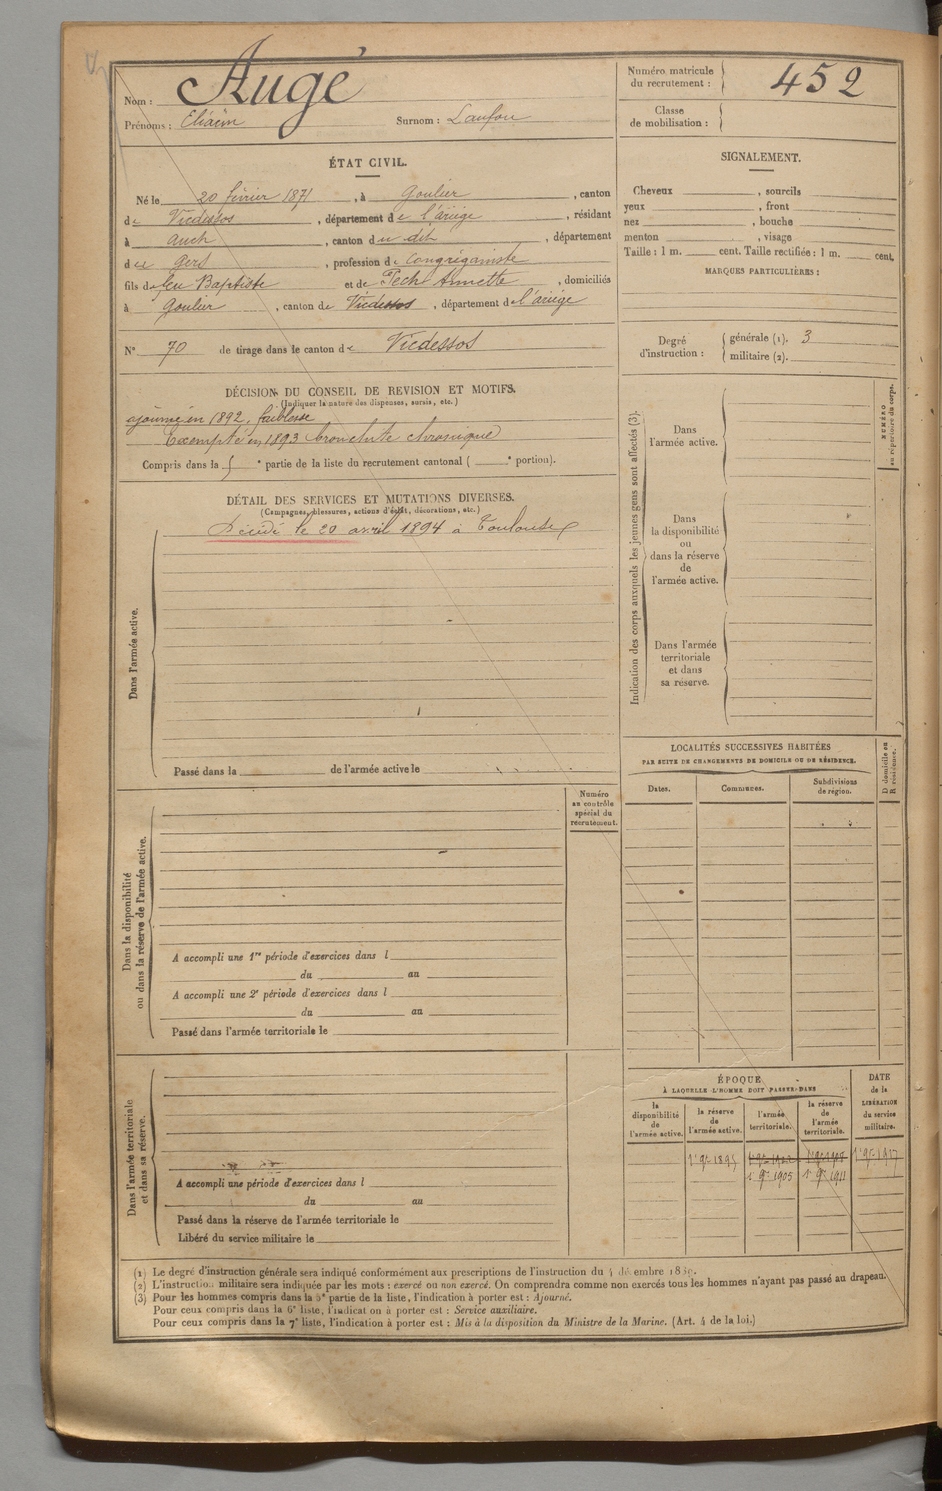 Nom : Augé
Prénoms : Eliacin Surnom : Laufou
Numéro matricule du recrutement : 452
Classe de mobilisation :
ÉTAT CIVIL.
Né le 20 février 1871, à Goulier, canton
de Vicdessos, département de l'ariège, résidant
à auch, canton du dit, département
du Gers, profession de Congréganiste
fils de feu Baptiste et de Pech Annette, domiciliés
à Goulier, canton de Vicdessos, département de l'ariège
N° 70 de tirage dans le canton de Vicdessos
SIGNALEMENT.
Cheveux , sourcils
yeux , front
nez , bouche
menton , visage
Taille : 1 m. cent. Taille rectifiée : 1 m. cent.
MARQUES PARTICULIÈRES :
Degré d'instruction : générale (1). 3
militaire (2).
DÉCISION DU CONSEIL DE REVISION ET MOTIFS.
(Indiquer la nature des dispenses, sursis, etc.)
ajourné en 1892, faiblesse
Exempté en 1893 bronchite chronique
Compris dans la e partie de la liste du recrutement cantonal ( e portion).
DÉTAIL DES SERVICES ET MUTATIONS DIVERSES.
(Campagnes, blessures, actions d'éclat, décorations, etc.)
Décédé le 20 avril 1894 à Toulouse
Dans l'armée active.
Passé dans la de l'armée active le
Indication des corps auxquels les jeunes gens sont affectés (3).
Dans l'armée active.
Dans la disponibilité ou dans la réserve de l'armée active.
Dans l'armée territoriale et dans sa réserve.
NUMÉRO au répertoire du corps.
LOCALITÉS SUCCESSIVES HABITÉES
PAR SUITE DE CHANGEMENTS DE DOMICILE OU DE RÉSIDENCE.
Dates. Communes. Subdivisions de région.
D domicile ou R résidence.
Numéro au contrôle spécial du recrutement.
Dans la disponibilité ou dans la réserve de l'armée active.
A accompli une 1re période d'exercices dans l
du au
A accompli une 2e période d'exercices dans l
du au
Passé dans l'armée territoriale le
Dans l'armée territoriale et dans sa réserve.
A accompli une période d'exercices dans l
du au
Passé dans la réserve de l'armée territoriale le
Libéré du service militaire le
ÉPOQUE
À LAQUELLE L'HOMME DOIT PASSER DANS
la disponibilité de l'armée active. la réserve de l'armée active. l'armée territoriale. la réserve de l'armée territoriale.
DATE de la LIBÉRATION du service militaire.
1er 9bre 1895 1er 9bre 1917
1er 9bre 1905 1er 9bre 1911
(1) Le degré d'instruction générale sera indiqué conformément aux prescriptions de l'instruction du 4 décembre 1889.
(2) L'instruction militaire sera indiquée par les mots : exercé ou non exercé. On comprendra comme non exercés tous les hommes n'ayant pas passé au drapeau.
(3) Pour les hommes compris dans la 5e partie de la liste, l'indication à porter est : Ajourné.
Pour ceux compris dans la 6e liste, l'indication à porter est : Service auxiliaire.
Pour ceux compris dans la 7e liste, l'indication à porter est : Mis à la disposition du Ministre de la Marine. (Art. 4 de la loi.)